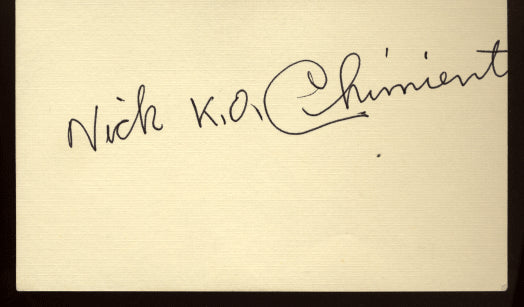 Nick K.O. Chimient